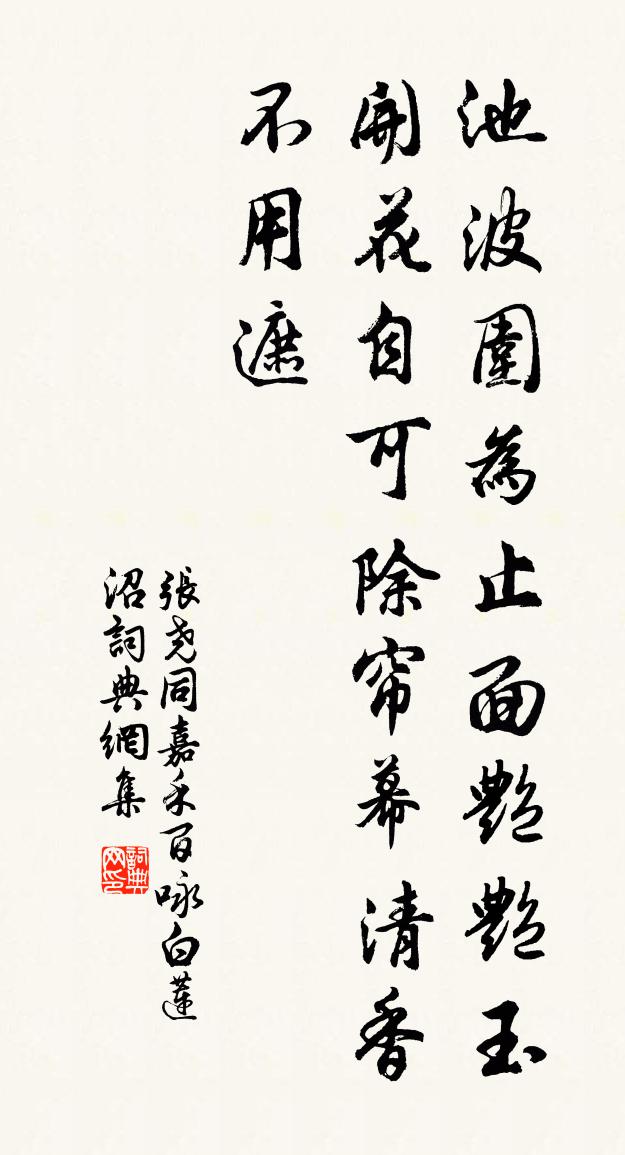 池波圍為止面艷艷玉
開花自可除帘幕清香
不用遮
張尧同嘉禾百咏白蓮
沼詞典網集
詞典
网印